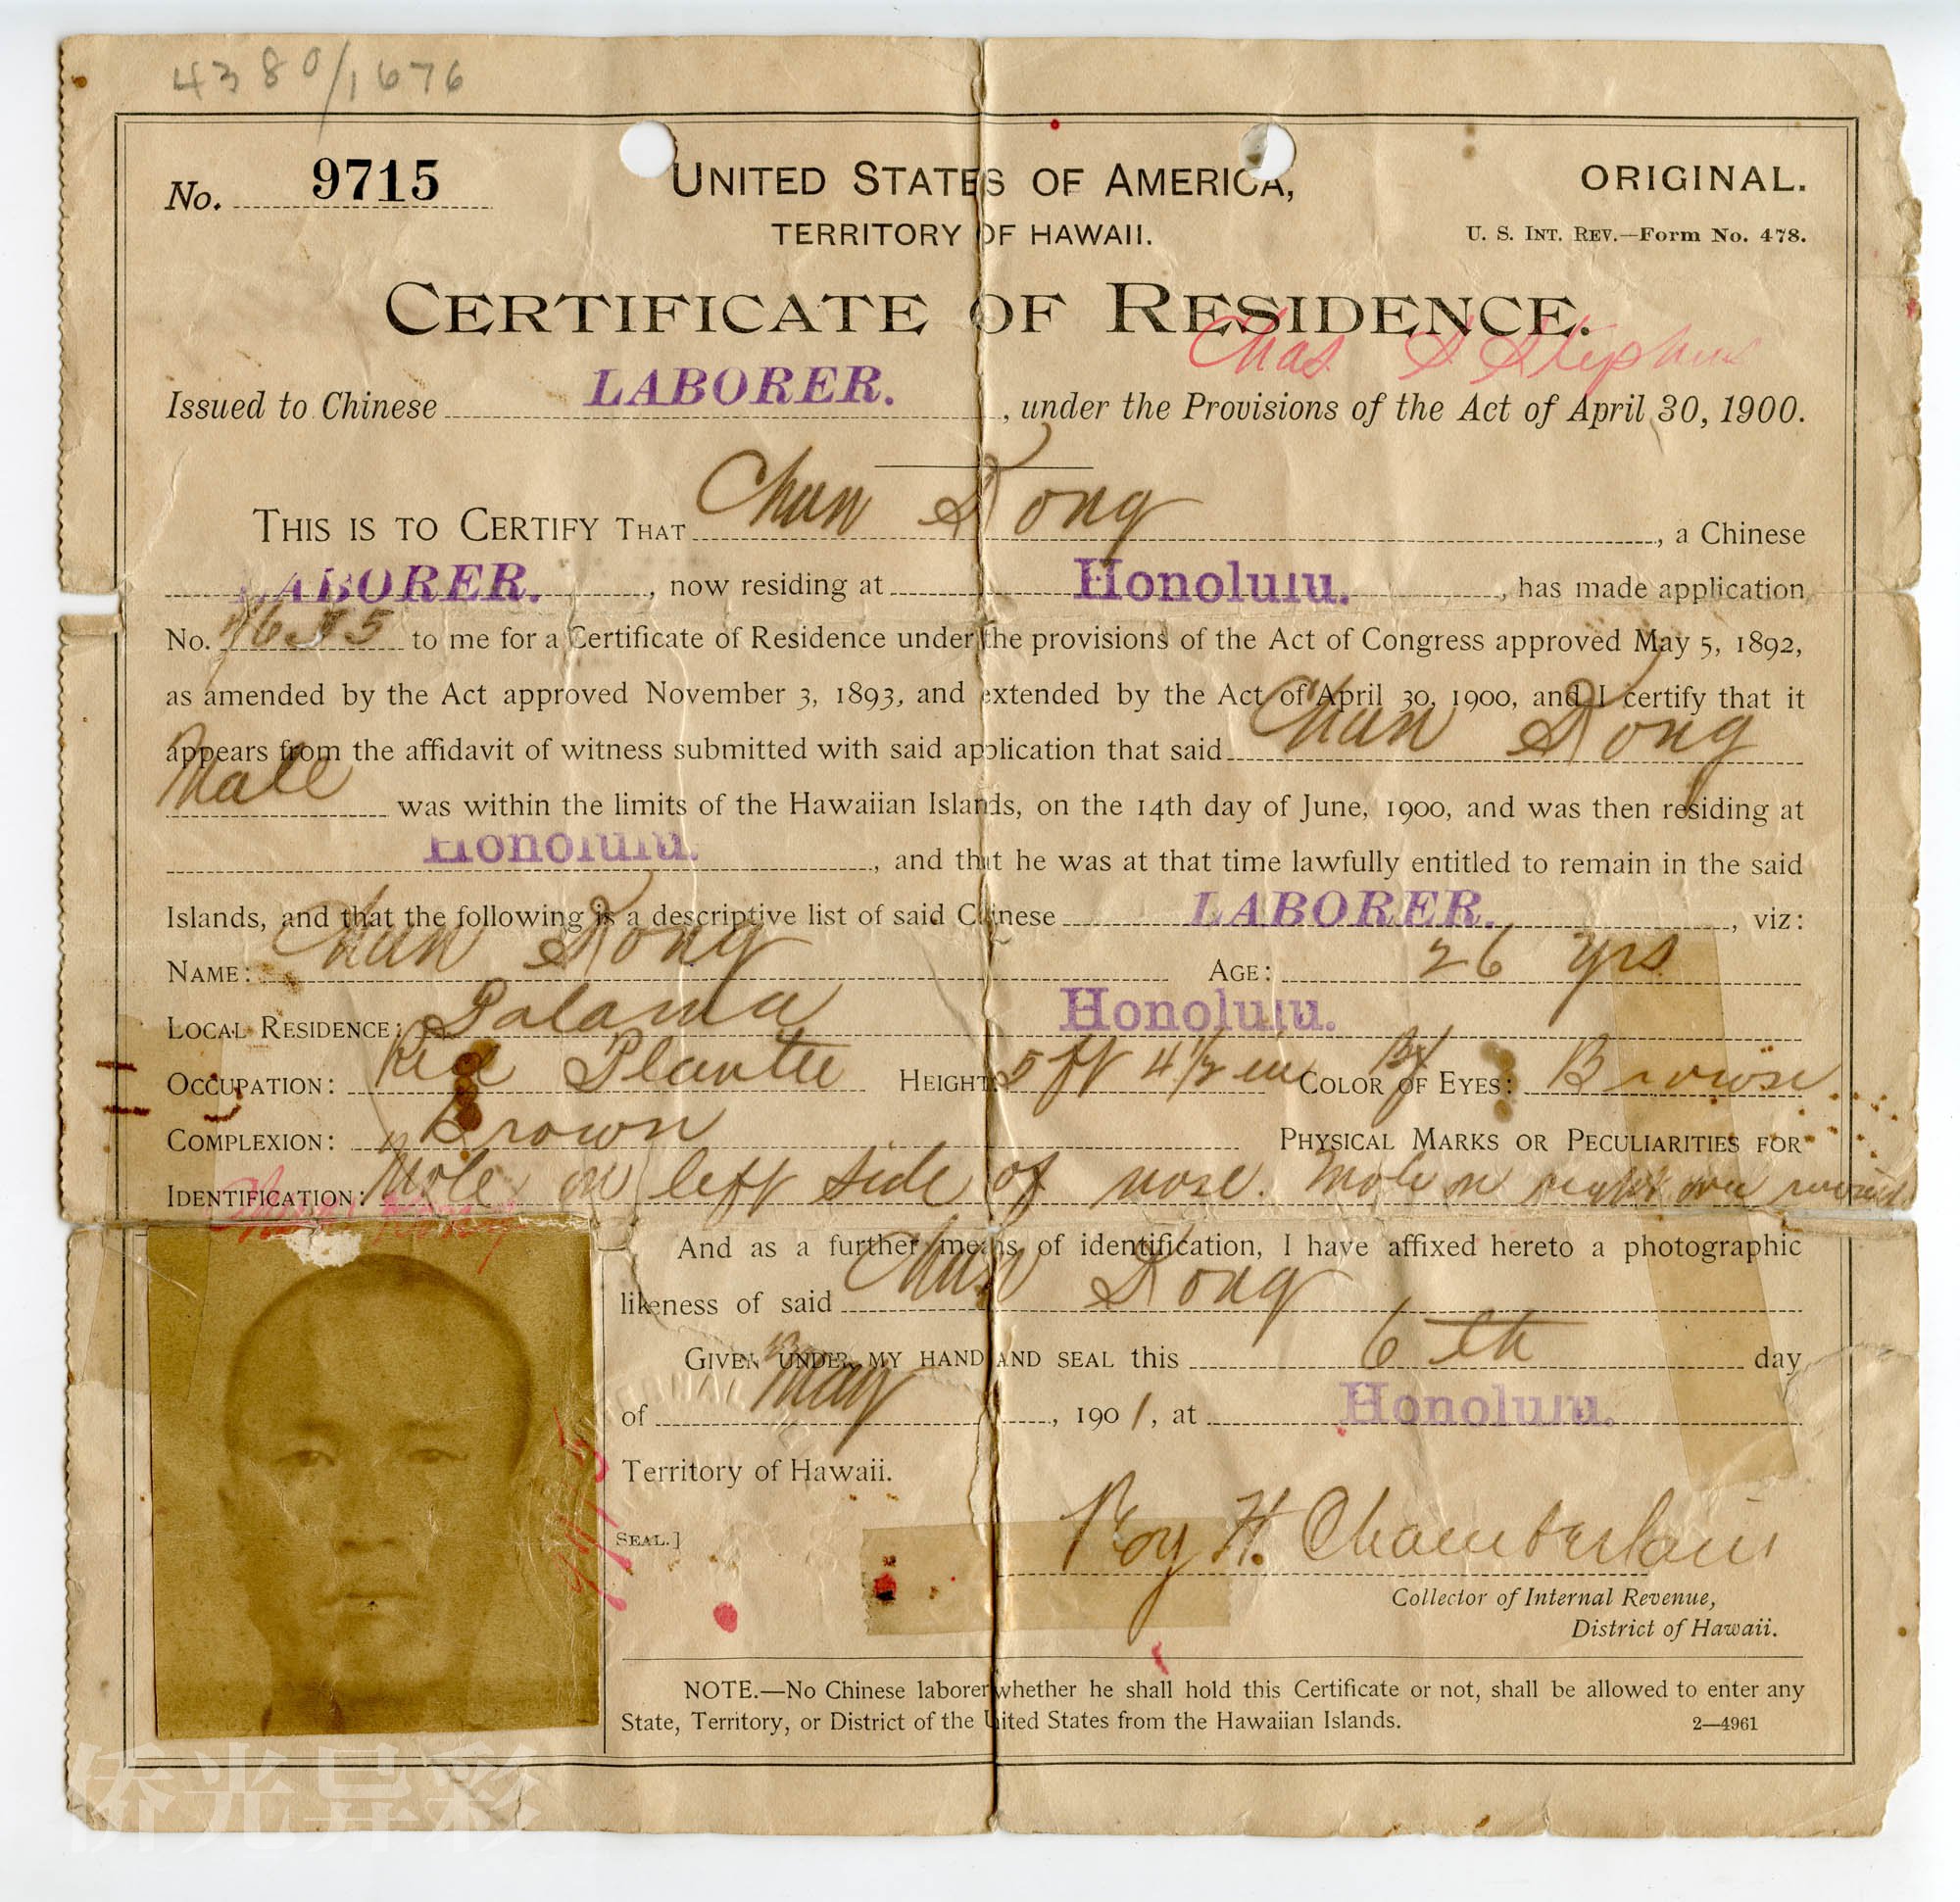 4380/1676
No. 9715 UNITED STATES OF AMERICA, ORIGINAL.
TERRITORY OF HAWAII. U. S. INT. REV.—Form No. 478.
CERTIFICATE OF RESIDENCE.
Chas
Issued to Chinese LABORER. , under the Provisions of the Act of April 30, 1900.
THIS IS TO CERTIFY THAT Chun Kong , a Chinese
LABORER. , now residing at Honolulu. , has made application
No. to me for a Certificate of Residence under the provisions of the Act of Congress approved May 5, 1892,
as amended by the Act approved November 3, 1893, and extended by the Act of April 30, 1900, and I certify that it
appears from the affidavit of witness submitted with said application that said Chun Kong
Male was within the limits of the Hawaiian Islands, on the 14th day of June, 1900, and was then residing at
Honolulu. , and that he was at that time lawfully entitled to remain in the said
Islands, and that the following is a descriptive list of said Chinese LABORER. , viz:
NAME: Chun Kong AGE: 26 yrs
LOCAL RESIDENCE: Palama Honolulu.
OCCUPATION: Planter HEIGHT: 5 ft 4 1/2 in COLOR OF EYES: Brown
COMPLEXION: Brown PHYSICAL MARKS OR PECULIARITIES FOR
IDENTIFICATION: Mole on left side of nose. Mole on right
And as a further means of identification, I have affixed hereto a photographic
likeness of said Chun Kong
GIVEN UNDER MY HAND AND SEAL this 6th day
of May , 1901, at Honolulu.
Territory of Hawaii.
SEAL.]
Roy H. Chamberlain
Collector of Internal Revenue,
District of Hawaii.
NOTE.—No Chinese laborer whether he shall hold this Certificate or not, shall be allowed to enter any
State, Territory, or District of the United States from the Hawaiian Islands. 2—4961
侨光异彩